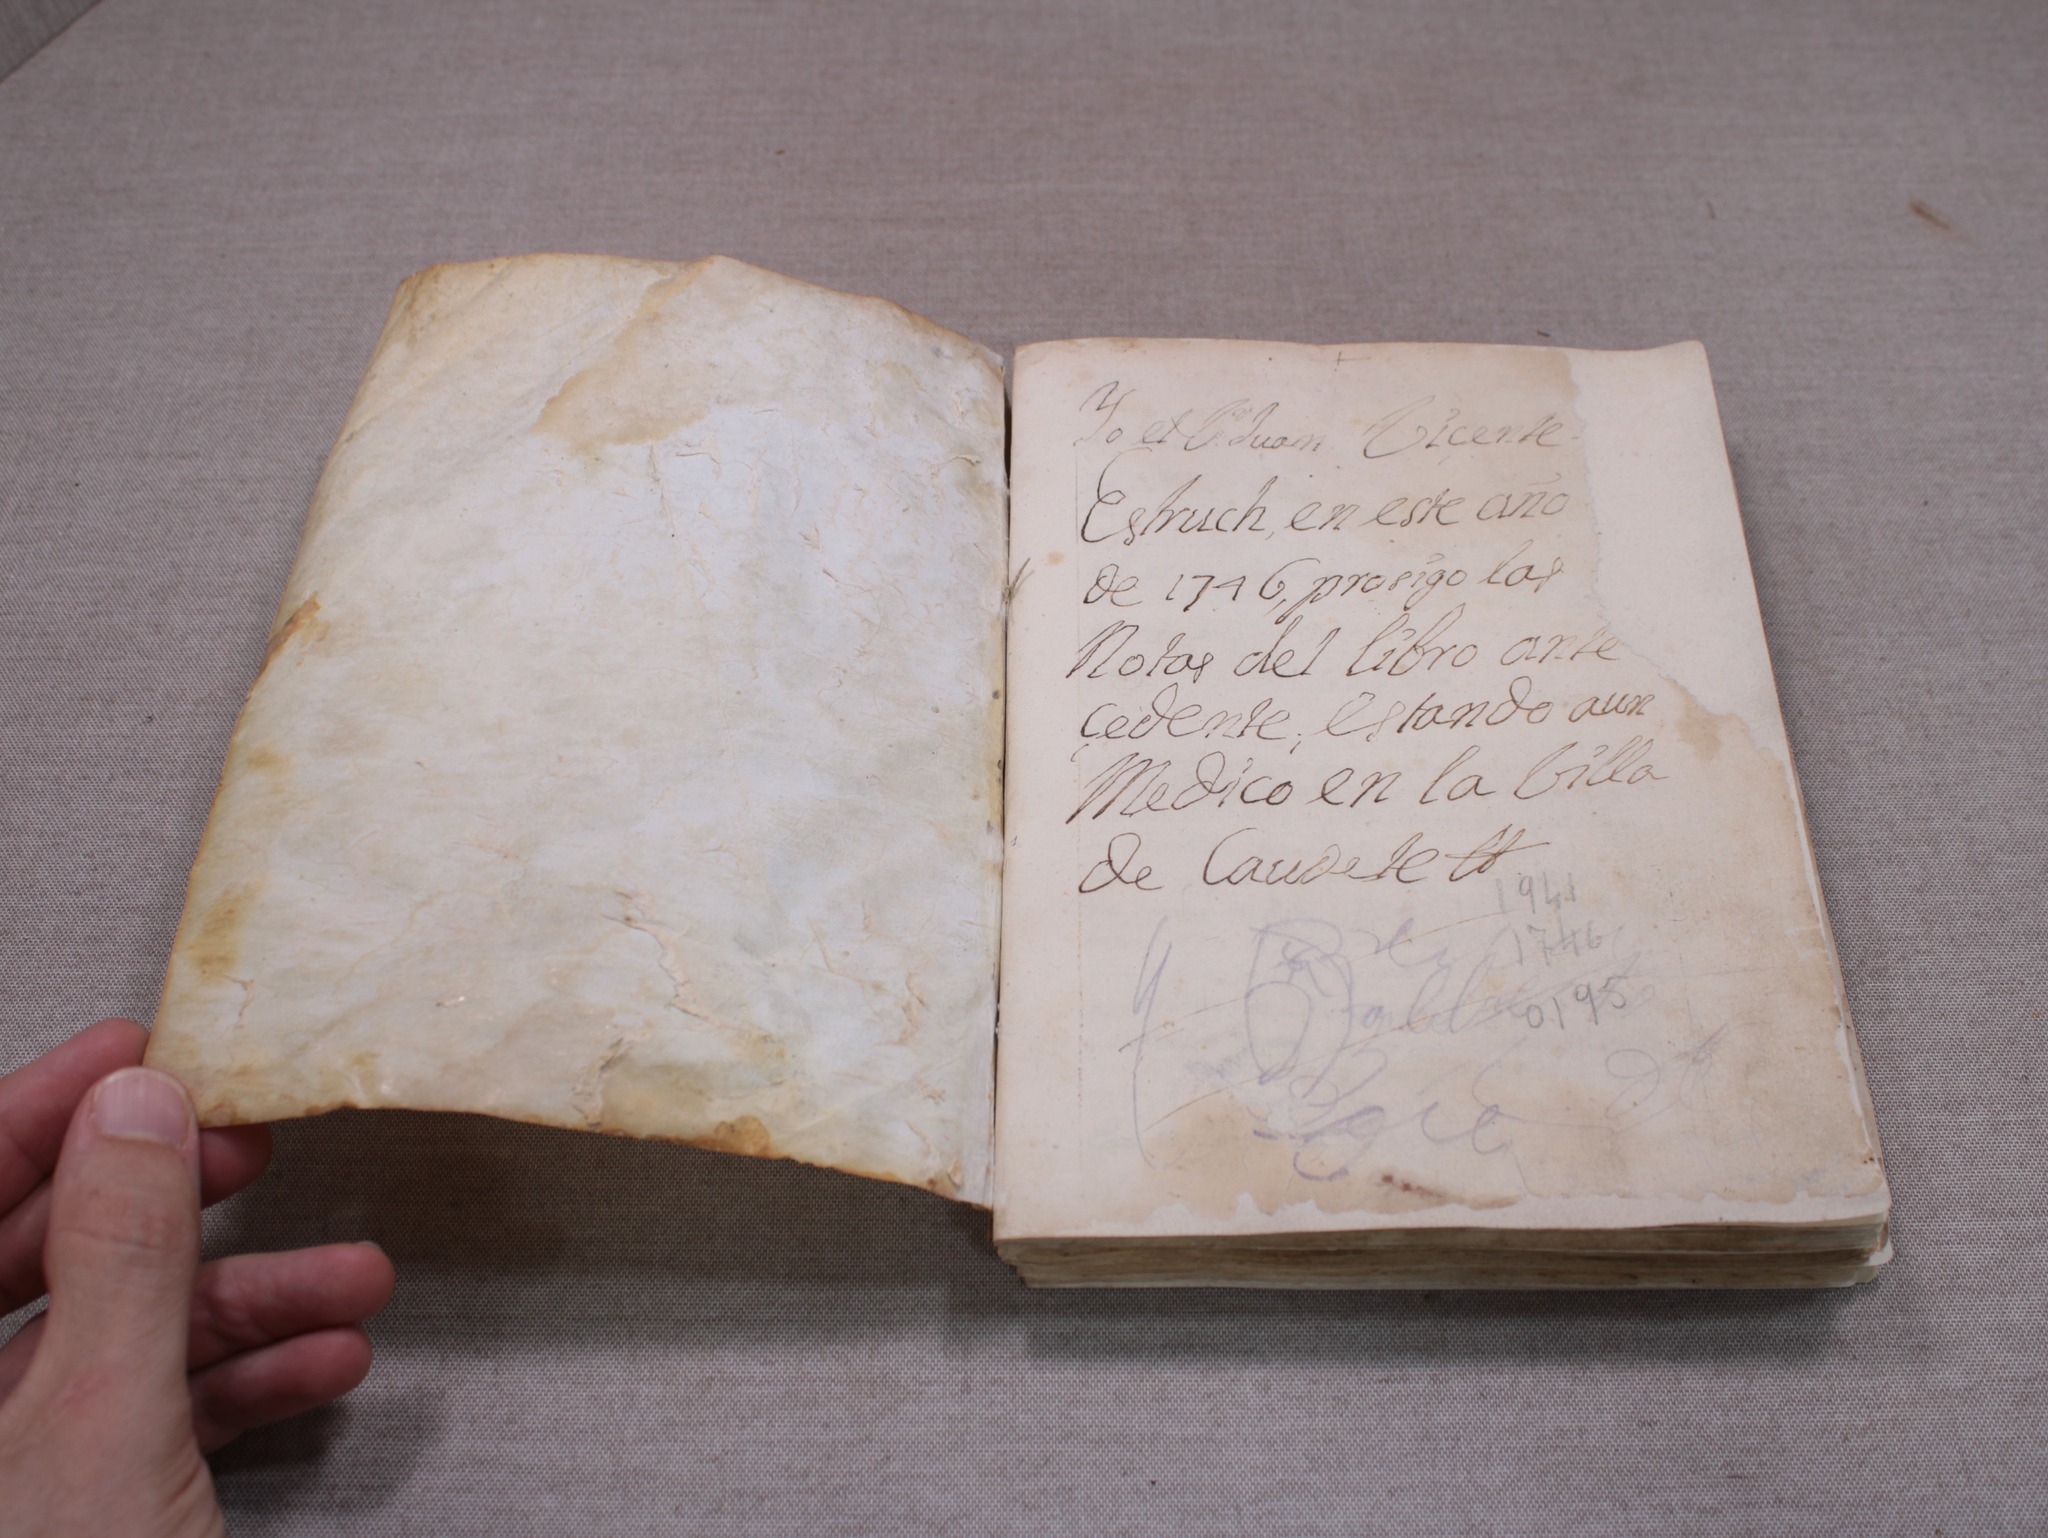 Yo el Dr. Juan Bicente
Estruch, en este año
de 1746, prosigo las
Notas del libro ante
cedente, estando aun
Medico en la Billa
de Caudete
1941
1746
0195